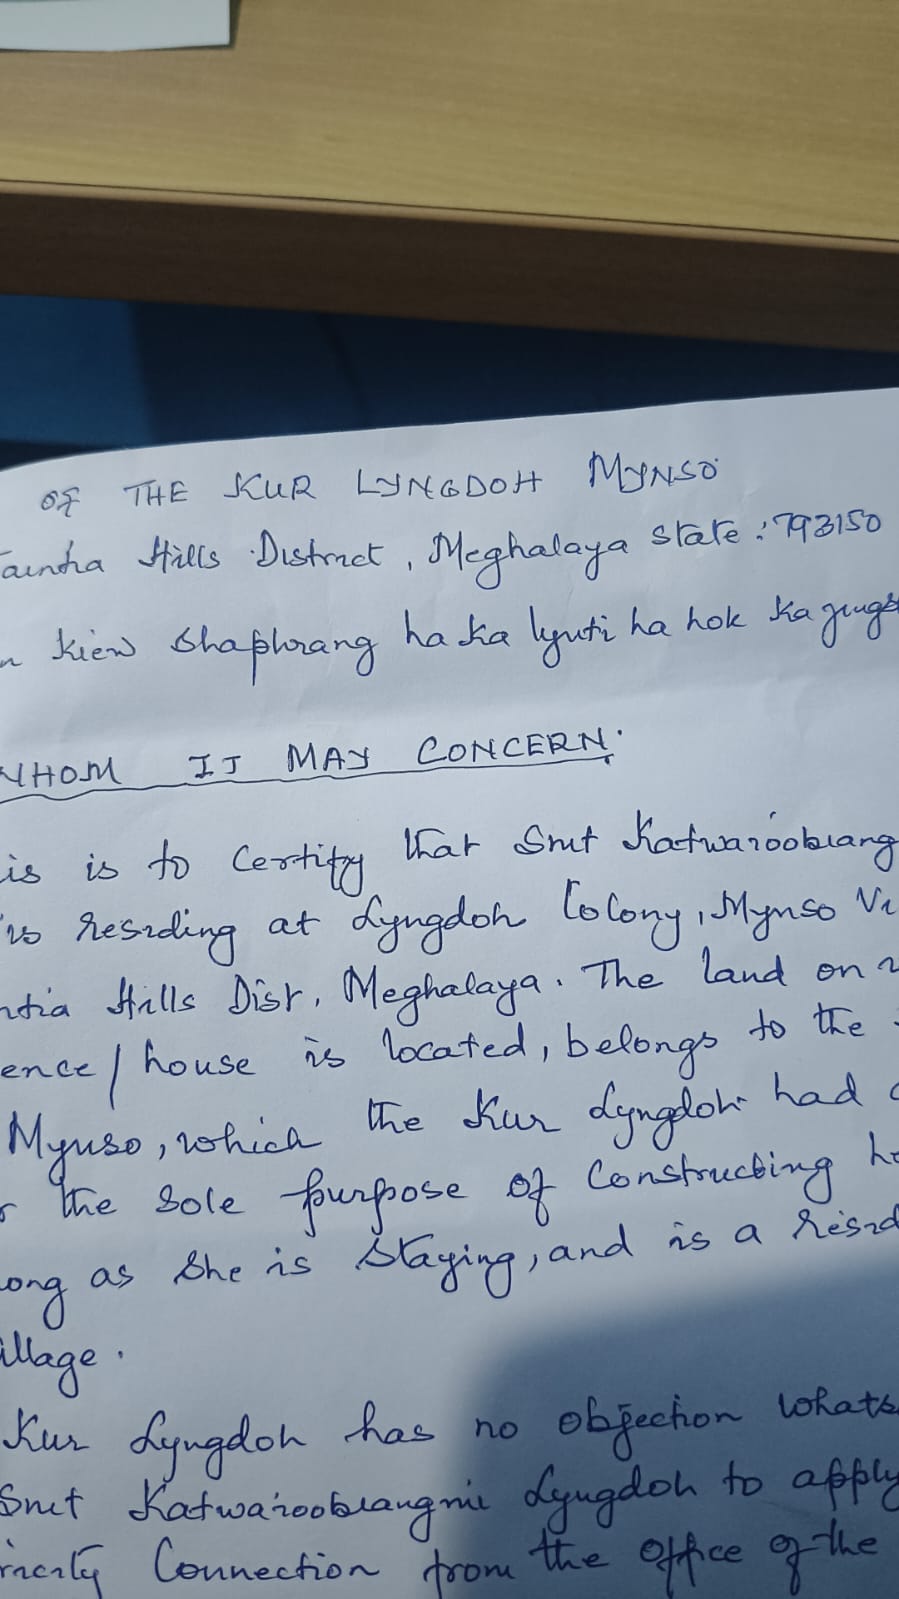 OF THE KUR LYNGDOH MYNSO
aintia Hills District, Meghalaya State: 793150
n kiew Shaphrang ha ka lynti ha hok ka jings
WHOM IT MAY CONCERN.
is is to Certify that Smt Katwaroobiang
is residing at Lyngdoh Colony, Mynso Vi
ntia Hills Dist, Meghalaya. The land on w
ence/house is located, belongs to the
Mynso, which the Kur Lyngdoh had a
r the sole purpose of Constructing ho
long as She is Staying, and is a resid
illage.
Kur Lyngdoh has no objection whats
Smt Katwaroobiangmi Lyngdoh to apply
ricity Connection from the office of the